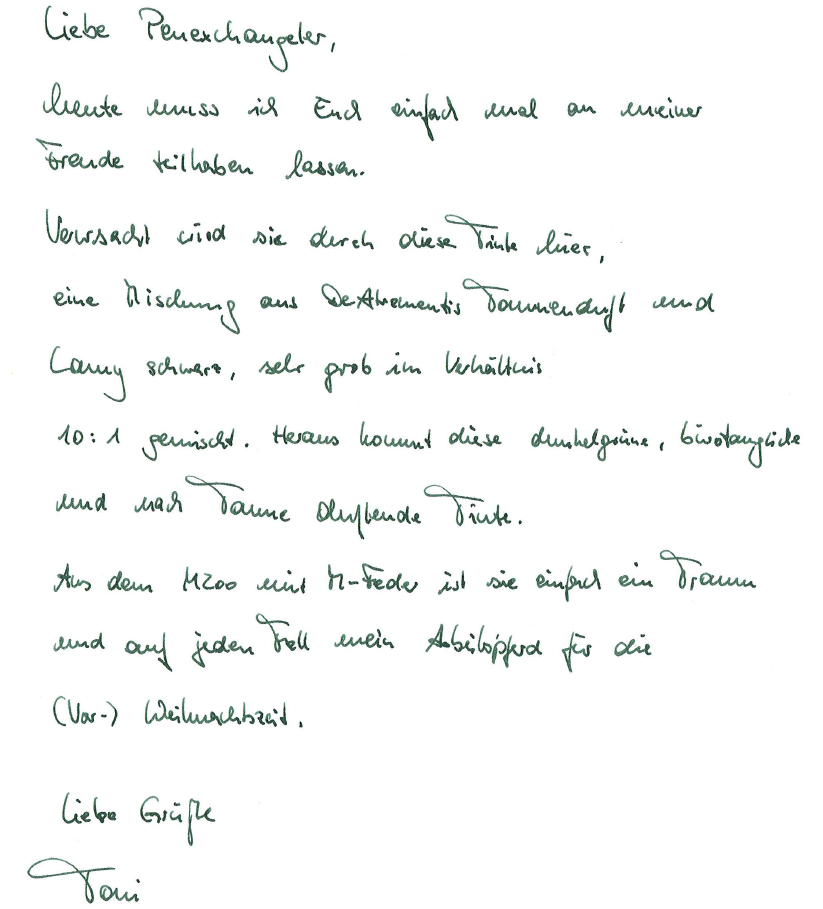 Liebe Penexchangeler,
heute muss ich Euch einfach mal an meiner
Freude teilhaben lassen.
Verursacht wird sie durch diese Tinte hier,
eine Mischung aus DeAtramentis Tannenduft und
Lamy schwarz, sehr grob im Verhältnis
10:1 gemischt. Heraus kommt diese dunkelgrüne, bürotaugliche
und nach Tanne duftende Tinte.
Aus dem M200 mit M-Feder ist sie einfach ein Traum
und auf jeden Fall mein Arbeitspferd für die
(Vor-) Weihnachtszeit.
Liebe Grüße
Toni